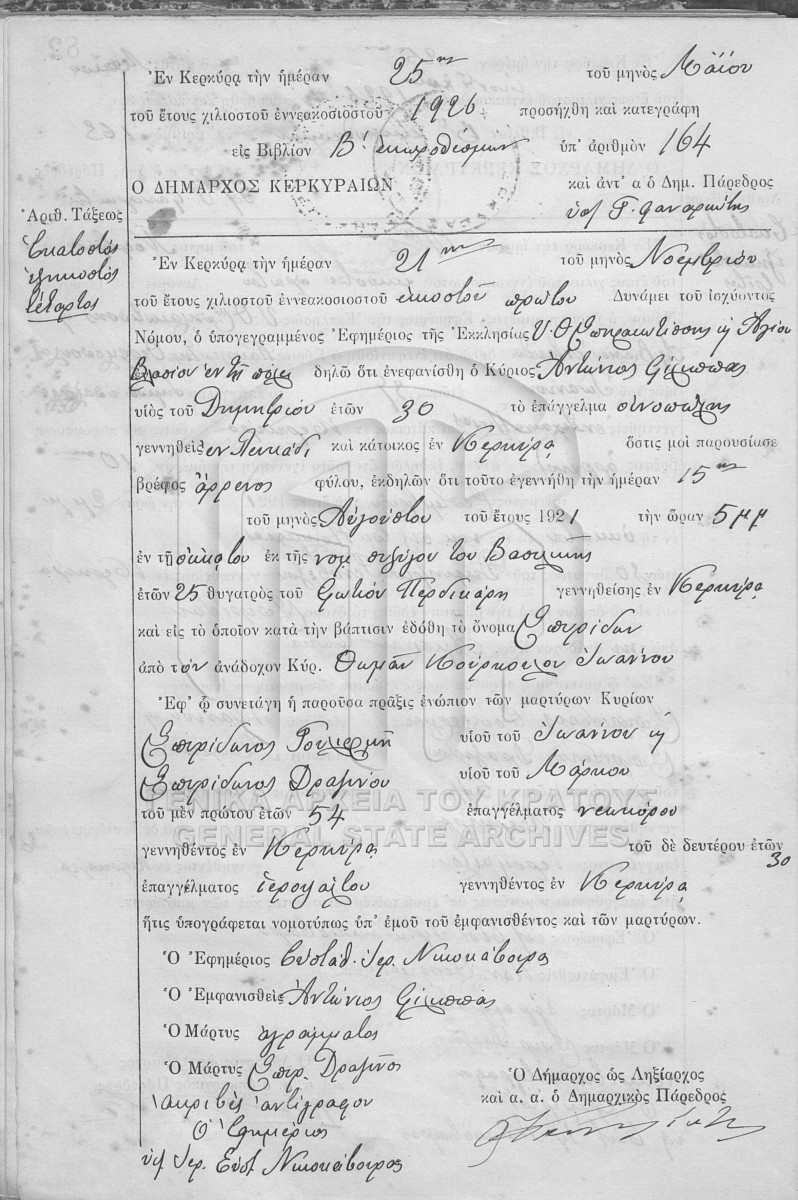 Ἐν Κερκύρᾳ τὴν ἡμέραν 25ην τοῦ μηνὸς Μαΐου
τοῦ ἔτους χιλιοστοῦ ἐννεακοσιοστοῦ 1926 προσήχθη καὶ κατεγράφη
εἰς Βιβλίον Β' ἐκπροθέσμων ὑπ' ἀριθμὸν 164
Ο ΔΗΜΑΡΧΟΣ ΚΕΡΚΥΡΑΙΩΝ καὶ ἀντ' α ὁ Δημ. Πάρεδρος
Γ. Φαναριώτης
Ἀριθ. Τάξεως
Ἑκατοστὸς
ἑξηκοστὸς
τέταρτος
Ἐν Κερκύρᾳ τὴν ἡμέραν 21ην τοῦ μηνὸς Νοεμβρίου
τοῦ ἔτους χιλιοστοῦ ἐννεακοσιοστοῦ εἰκοστοῦ πρώτου Δυνάμει τοῦ ἰσχύοντος
Νόμου, ὁ ὑπογεγραμμένος Ἐφημέριος τῆς Ἐκκλησίας Υ. Θ. Σπηλαιωτίσσης Ἁγίου
Βλασίου ἐν τῇ πόλει δηλῶ ὅτι ἐνεφανίσθη ὁ Κύριος Ἀντώνιος
υἱὸς τοῦ Δημητρίου ἐτῶν 30 τὸ ἐπάγγελμα οἰνοπώλης
γεννηθεὶς ἐν Λευκάδι καὶ κάτοικος ἐν Κερκύρᾳ ὅστις μοὶ παρουσίασε
βρέφος ἄρρενος φύλου, ἐκδηλῶν ὅτι τοῦτο ἐγεννήθη τὴν ἡμέραν 15ην
τοῦ μηνὸς Αὐγούστου τοῦ ἔτους 1921 τὴν ὥραν 5 μμ
ἐν τῇ οἰκίᾳ του ἐκ τῆς νομ συζύγου του Βασιλικῆς
ἐτῶν 25 θυγατρὸς τοῦ Φωτίου Περδικάρη γεννηθείσης ἐν Κερκύρᾳ
καὶ εἰς τὸ ὁποῖον κατὰ τὴν βάπτισιν ἐδόθη τὸ ὄνομα Σπυρίδων
ἀπὸ τὸν ἀνάδοχον Κύρ. Θωμᾶν Κούρκουλον Ἰωάννου
Ἐφ' ᾧ συνετάγη ἡ παροῦσα πρᾶξις ἐνώπιον τῶν μαρτύρων Κυρίων
Σπυρίδωνος υἱοῦ τοῦ Ἰωάννου
Σπυρίδωνος Δραγίνου υἱοῦ τοῦ Μάρκου
ΓΕΝΙΚΑ ΑΡΧΕΙΑ ΤΟΥ ΚΡΑΤΟΥΣ
τοῦ μὲν πρώτου ἐτῶν 54 ἐπαγγέλματος νεωκόρου
GENERAL STATE ARCHIVES
γεννηθέντος ἐν Κερκύρᾳ τοῦ δὲ δευτέρου ἐτῶν 30
ἐπαγγέλματος ἱεροψάλτου γεννηθέντος ἐν Κερκύρᾳ
ἥτις ὑπογράφεται νομοτύπως ὑπ' ἐμοῦ τοῦ ἐμφανισθέντος καὶ τῶν μαρτύρων.
Ὁ Ἐφημέριος Εὐστάθ. Ἱερ. Νικοκάβουρας
Ὁ Ἐμφανισθεὶς Ἀντώνιος
Ὁ Μάρτυς ἀγράμματος
Ὁ Μάρτυς Σπυρ. Δραγῖνος
Ἀκριβὲς ἀντίγραφον
Ὁ Ἐφημέριος
Ἱερ. Εὐστ Νικοκάβουρας
Ὁ Δήμαρχος ὡς Ληξίαρχος
καὶ α. α. ὁ Δημαρχικὸς Πάρεδρος